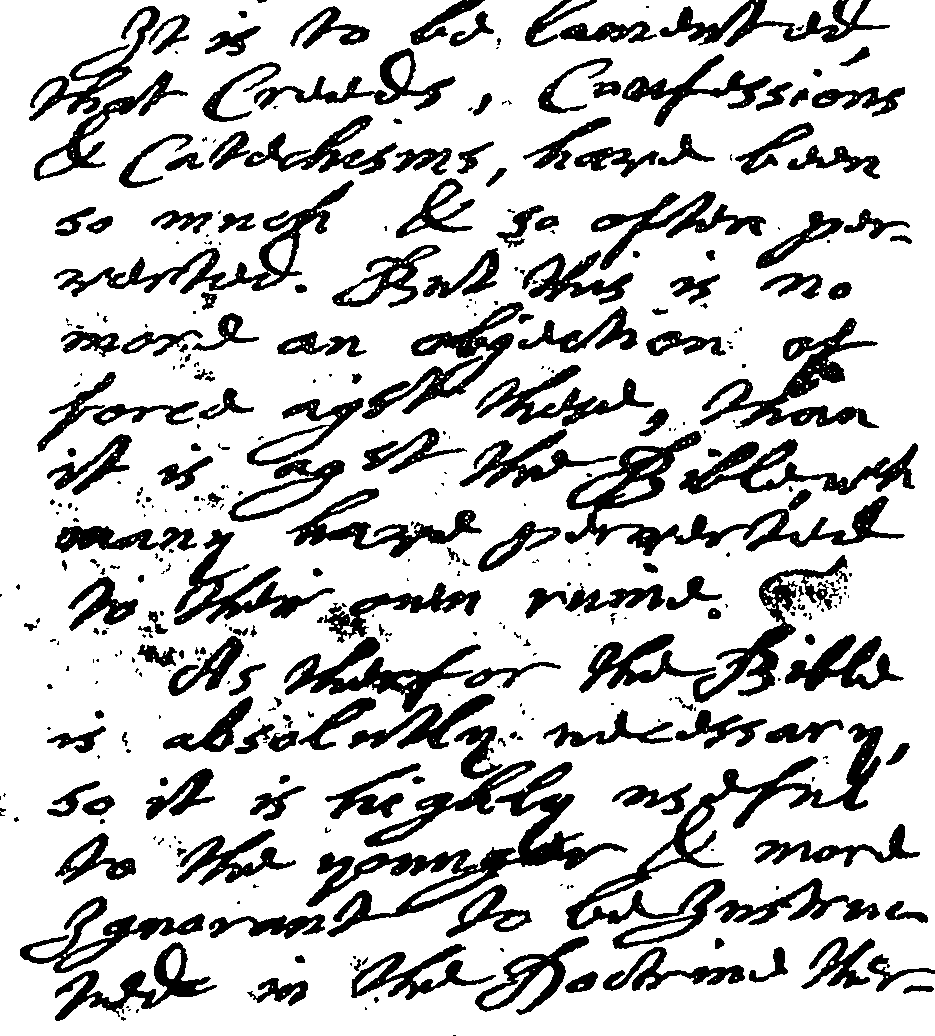 It is to be lamented,
that Creeds, Confessions
& Catechisms, have been
so much & so often per-
verted. But this is no
more an objection of
force agst these, than
it is agst the Bible, wch
many have perverted
to their own ruine.
As therefor the Bible
is absolutly necessary,
so it is highly useful
to the younger & more
Ignorant to be Instruc-
ted in the Doctrine ther-